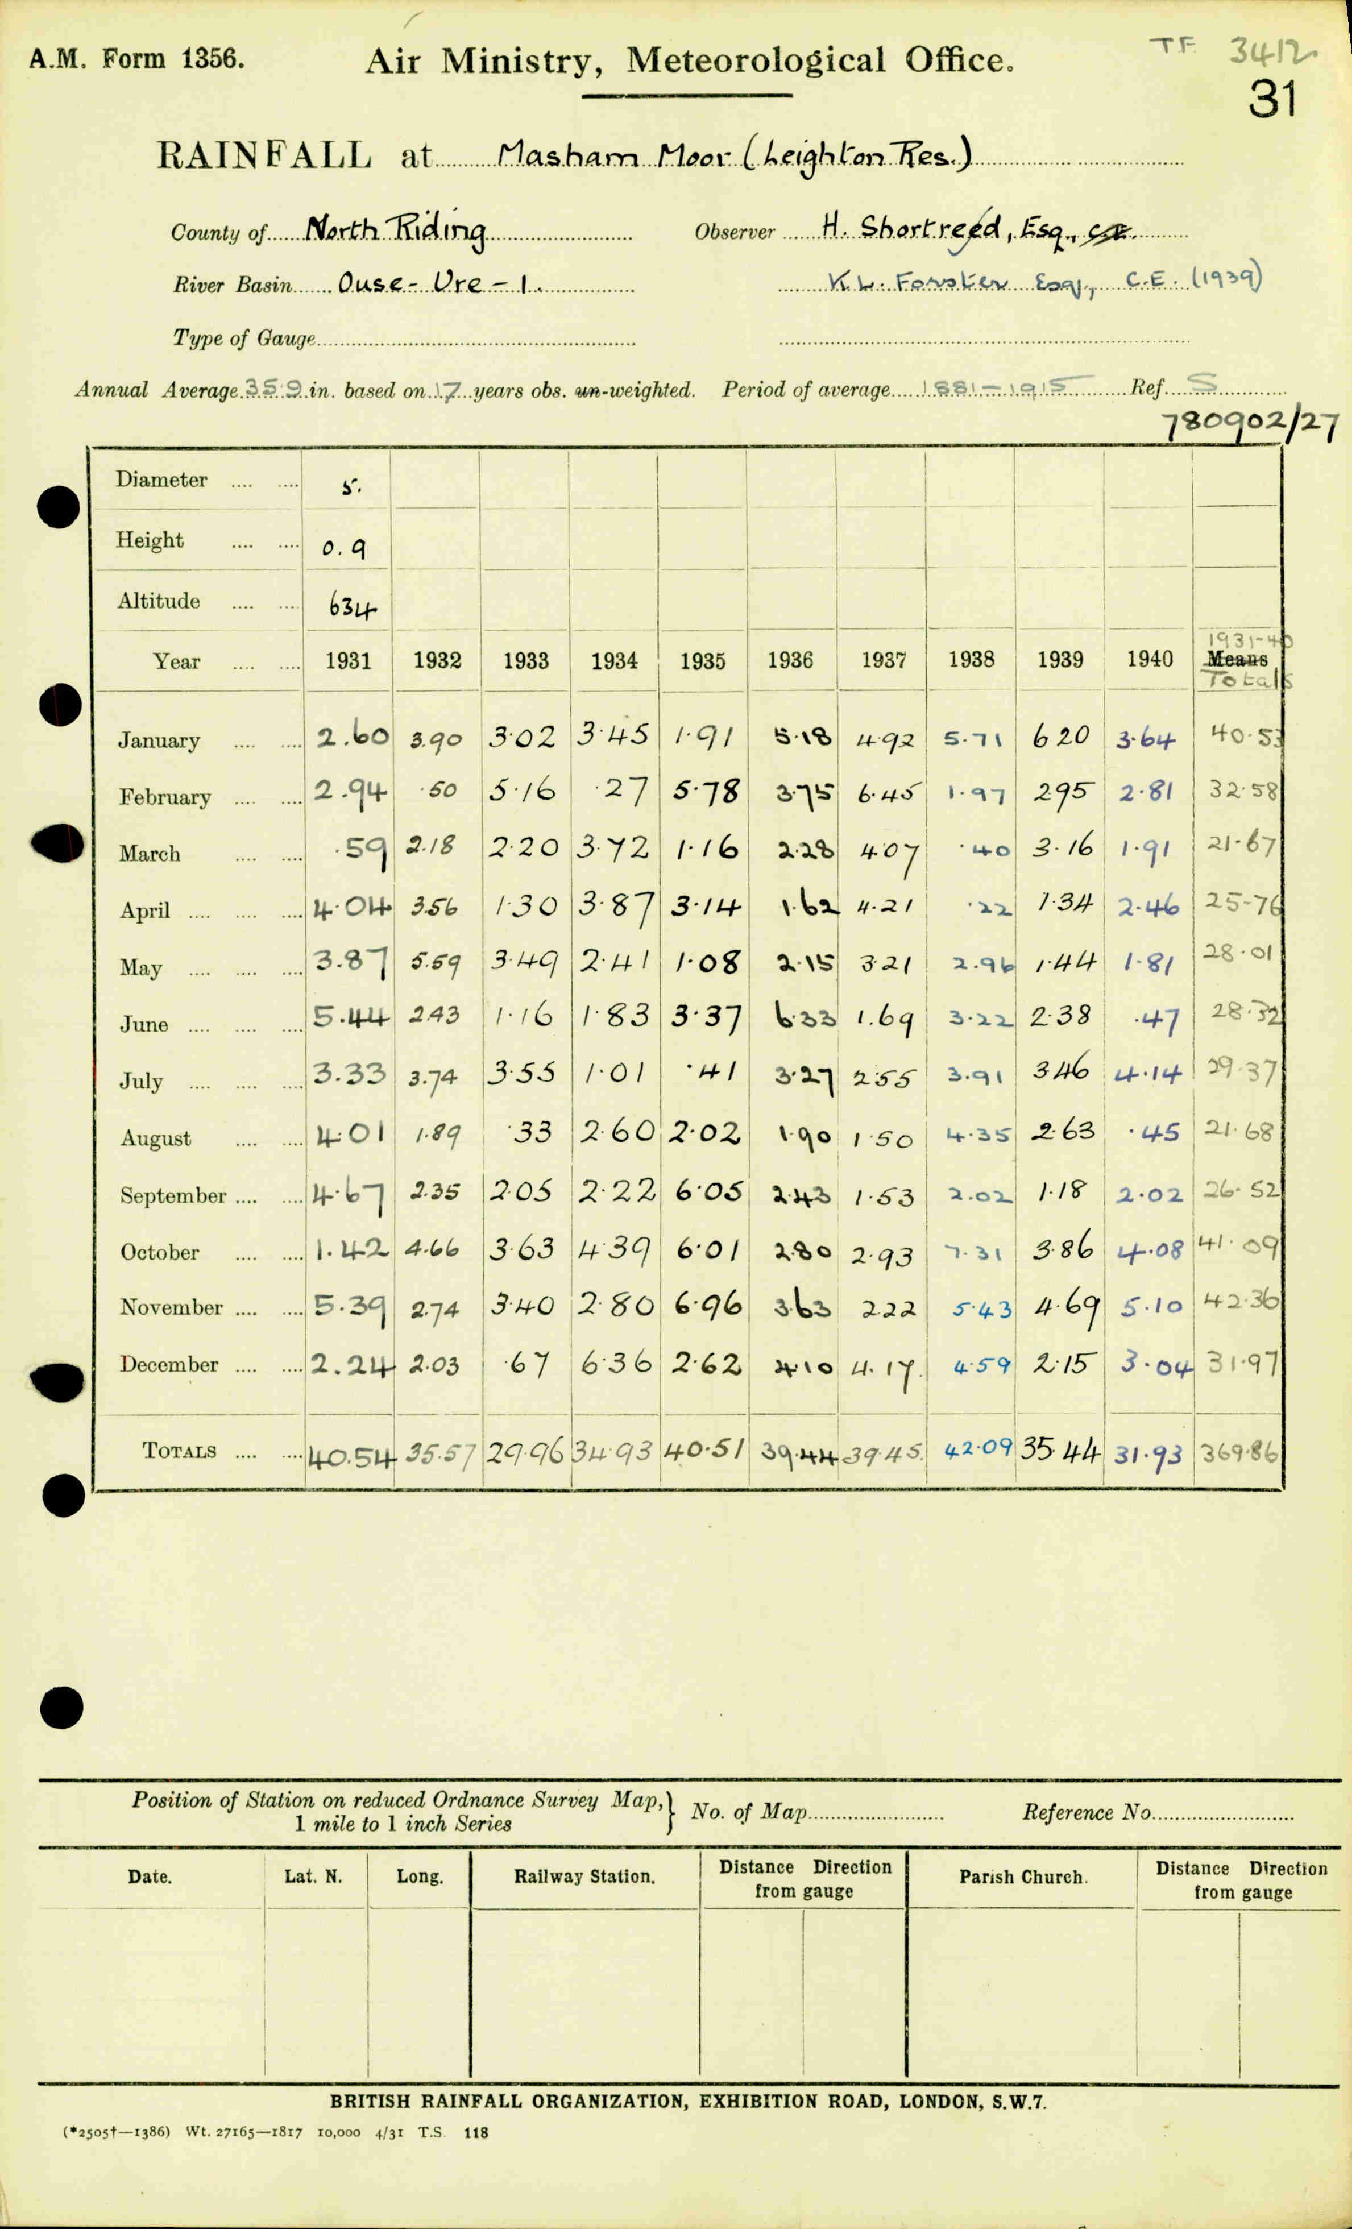 A.M. Form 1356.
Air Ministry, Meteorological Office.
T.F. 3412
31
RAINFALL at Masham Moor (Leighton Res.)
County of North Riding Observer H. Shortreed, Esq., C.E.
River Basin Ouse - Ure - 1. K.L. Forster Esq., C.E. (1939)
Type of Gauge
Annual Average 35.9 in. based on 17 years obs. un-weighted. Period of average 1881-1915 Ref. S
780902/27
Diameter 5.
Height 0.9
Altitude 634
1931-40
Year 1931 1932 1933 1934 1935 1936 1937 1938 1939 1940 Means
Totals
January 2.60 3.90 3.02 3.45 1.91 5.18 4.92 5.71 6.20 3.64 40.53
February 2.94 .50 5.16 .27 5.78 3.75 6.45 1.97 2.95 2.81 32.58
March .59 2.18 2.20 3.72 1.16 2.28 4.07 .40 3.16 1.91 21.67
April 4.04 3.56 1.30 3.87 3.14 1.62 4.21 .22 1.34 2.46 25.76
May 3.87 5.59 3.49 2.41 1.08 2.15 3.21 2.96 1.44 1.81 28.01
June 5.44 2.43 1.16 1.83 3.37 6.33 1.69 3.22 2.38 .47 28.32
July 3.33 3.74 3.55 1.01 .41 3.27 2.55 3.91 3.46 4.14 29.37
August 4.01 1.89 .33 2.60 2.02 1.90 1.50 4.35 2.63 .45 21.68
September 4.67 2.35 2.05 2.22 6.05 2.43 1.53 2.02 1.18 2.02 26.52
October 1.42 4.66 3.63 4.39 6.01 2.80 2.93 7.31 3.86 4.08 41.09
November 5.39 2.74 3.40 2.80 6.96 3.63 2.22 5.43 4.69 5.10 42.36
December 2.24 2.03 .67 6.36 2.62 4.10 4.17 4.59 2.15 3.04 31.97
TOTALS 40.54 35.57 29.96 34.93 40.51 39.44 39.45 42.09 35.44 31.93 369.86
Position of Station on reduced Ordnance Survey Map,} No. of Map Reference No.
1 mile to 1 inch Series
Date. Lat. N. Long. Railway Station. Distance Direction from gauge Parish Church. Distance Direction from gauge
BRITISH RAINFALL ORGANIZATION, EXHIBITION ROAD, LONDON, S.W.7.
(*2505†—1386) Wt. 27165—1817 10,000 4/31 T.S. 118